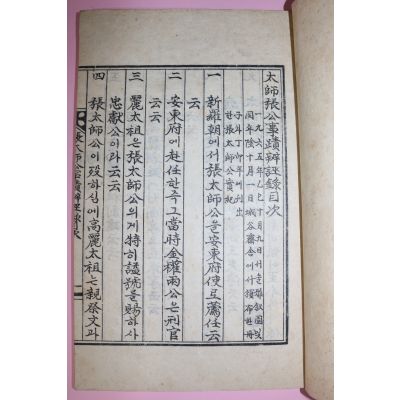 太師張公事蹟辨誣錄目次
一九六五年乙巳十月九日서
同年陰十月一日城谷齋舍에서
한張太師公實紀
一 新羅朝에서張太師公을安東府使로薦任云
云
二 安東府에赴任한즉그當時金權兩公은刑官
云云
三 麗太祖은張太師公의게特히諡號을賜하사
忠獻公이라云云
四 張太師公이歿하심에高麗太祖는親祭文과